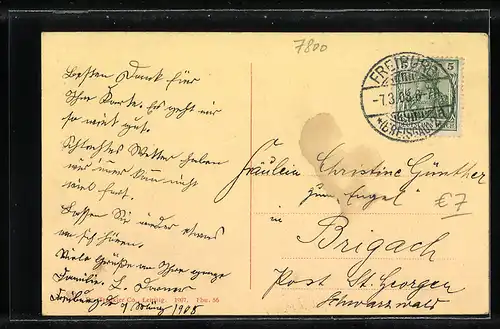 7800
FREIBURG
-7.3.08.6-7N
*(BREISGAU)2
5
Besten Dank für
Ihre Karte. Es geht mir
so weit gut.
Schlechtes Wetter haben
wir immer kann nicht
viel fort.
Lassen Sie wieder etwas
von sich hören.
Viele Grüße an Ihre ganze
Familie. L.
Freiburg 7 März 1908
Fräulein Christine Günther
zum Engel
in
Brigach
Post St. Georgen
Schwarzwald
€ 7
Co. Leipzig. 1907. 56